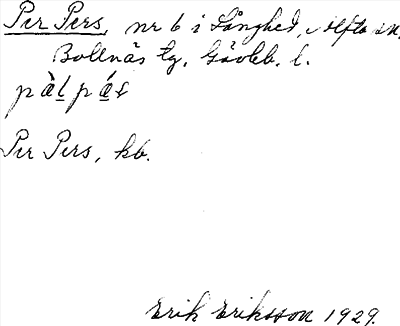 Per Pers, nr 6 i Långhed, Alfta sn,
Bollnäs tg, Gävleb. l.
pàl̲ pǽs
Per Pers, kb.
Erik Eriksson 1929.